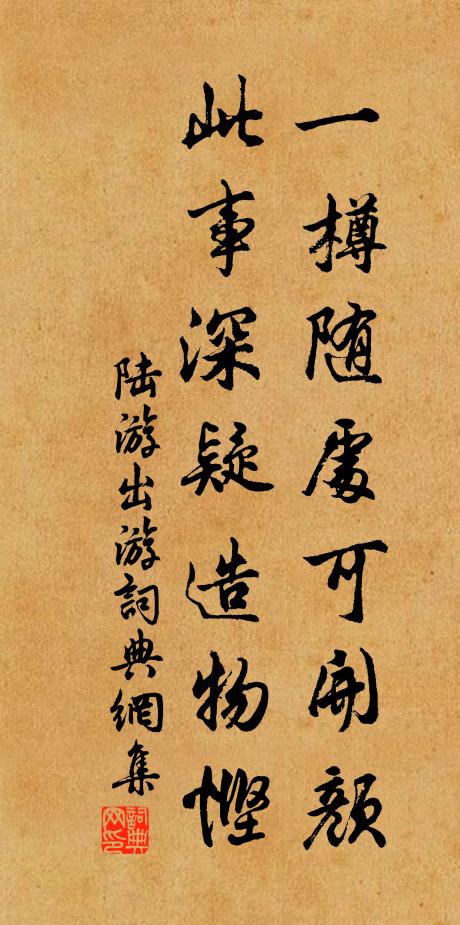 一樽随處可開顏
此事深疑造物慳
陆游出游詞典網集
詞典网印